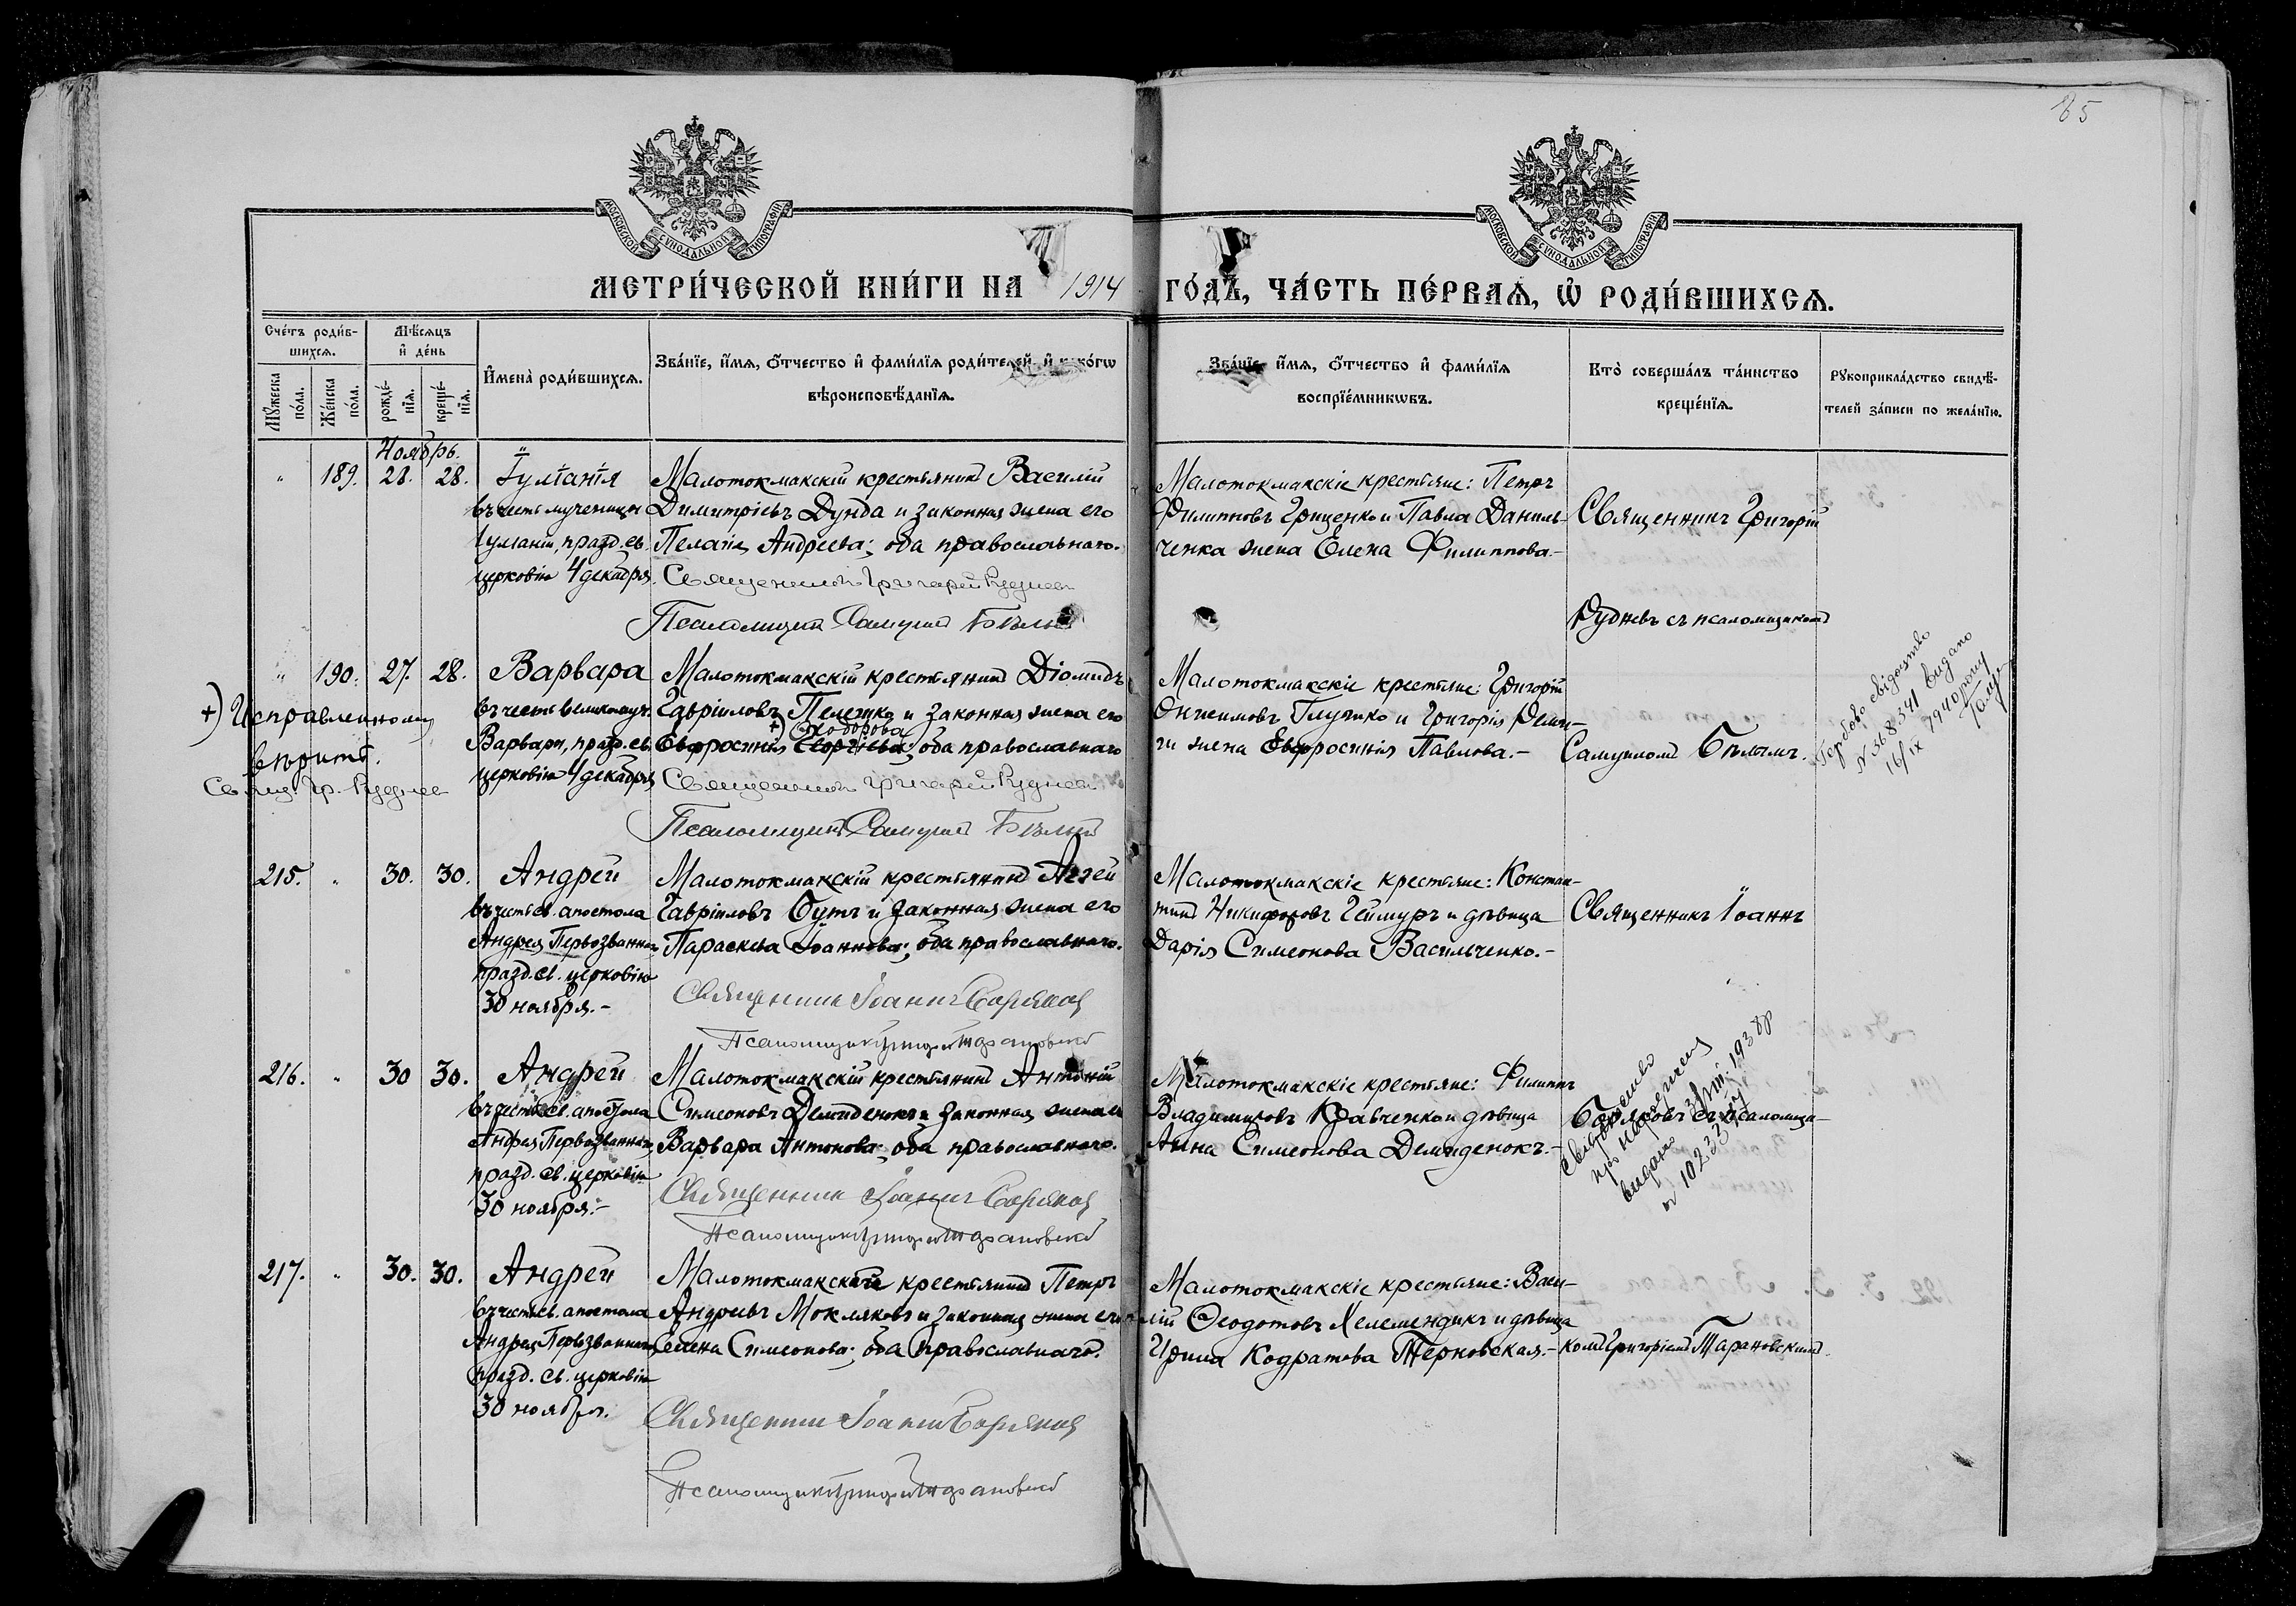 185
МОСКОВСКОЙ СѴНОДАЛЬНОЙ ТИПОГРАФІИ
МОСКОВСКОЙ СѴНОДАЛЬНОЙ ТИПОГРАФІИ
МЕТРИ́ЧЕСКОЙ КНИ́ГИ НА 1914 ГО́ДЪ, ЧА́СТЬ ПЕ́РВАѦ, Ѡ҆ РОДИ́ВШИХСѦ.
Сче́тъ роди́в-
шихсѧ.
Мꙋ́жеска по́ла.
Же́нска по́ла.
Мѣ́сѧцъ
и҆ де́нь
рожде́-
нїѧ.
креще́-
нїѧ.
И҆мена̀ роди́вшихсѧ.
Зва́нїе, и҆́мѧ, ѻ҆́тчество и҆ фами́лїѧ роди́телей, и҆ како́гѡ
вѣроисповѣ́данїѧ.
Зва́нїе, и҆́мѧ, ѻ҆́тчество и҆ фами́лїѧ
воспрїе́мникѡвъ.
Кто̀ соверша́лъ та́инство
креще́нїѧ.
Рꙋкоприкла́дство свидѣ́-
телей за́писи по жела́нїю.
Ноябрь.
" 189. 28. 28. Іуліанія
въ честь мученицы
Іуліаніи, празд. св.
церковію 4 декабря.
Малотокмакскій крестьянинъ Василій
Димитріевъ Дунда и законная жена его
Пелагія Андреева; оба православнаго.
Священникъ Григорій Рудневъ
Псаломщикъ Самуилъ Бѣлый
Малотокмакскіе крестьяне: Петръ
Филипповъ Гриценко и Павла Даниль-
ченка жена Елена Филиппова.-
Священникъ Григорій
Рудневъ съ псаломщикомъ
" 190. 27. 28. Варвара
въ честь великомуч.
Варвары, празд. св.
церковію 4 декабря
Малотокмакскій крестьянинъ Діомидъ
Гавріиловъ Пележко и законная жена его
+) Ѳеодорова
Евфросинія Георгіева; оба православнаго
Священникъ Григорій Рудневъ
Псаломщикъ Самуилъ Бѣлый
+) Исправленному
вѣрить.
Свящ. Гр. Рудневъ
Малотокмакскіе крестьяне: Григорій
Онисимовъ Глушко и Григорія
жена Евфросинія Павлова.-
Самуиломъ Бѣлымъ.
Гербове свідоцтво
N 568341 видано
16/IX 1940 року
215. " 30. 30. Андрей
въ честь св. апостола
Андрея Первозваннаго
празд. св. церковію
30 ноября.-
Малотокмакскій крестьянинъ Аггей
Гавріиловъ Бутъ и законная жена его
Параскева Іоаннова; оба православнаго.
Священникъ Іоаннъ Боряковъ
Псаломщикъ Григорій Тарановскій
Малотокмакскіе крестьяне: Констан-
тинъ Никифоровъ Чеймуръ и дѣвица
Дарія Симеонова Васильченко.-
Священникъ Іоаннъ
216. " 30 30. Андрей
въ честь св. апостола
Андрея Первозваннаго,
празд. св. церковію
30 ноября.-
Малотокмакскій крестьянинъ Антоній
Симеоновъ Демиденокъ и законная жена его
Варвара Антонова; оба православнаго.
Священникъ Іоаннъ Боряковъ
Псаломщикъ Григорій Тарановскій
Малотокмакскіе крестьяне: Филиппъ
Владимировъ Кравченко и дѣвица
Анна Симеонова Демиденокъ.-
Боряковъ съ псаломщи-
про народження
видано
217. " 30. 30. Андрей
въ честь св. апостола
Андрея Первозваннаго
празд. св. церковію
30 ноября.
Малотокмакскій крестьянинъ Петръ
Андреевъ Мокляковъ и законная жена его
Елена Симеонова; оба православнаго.
Священникъ Іоаннъ Боряковъ
Псаломщикъ Григорій Тарановскій
Малотокмакскіе крестьяне: Васи-
лій Ѳеодотовъ Хелемендикъ и дѣвица
Ирина Кодратова Терновская.-
комъ Григоріемъ Тарановскимъ.